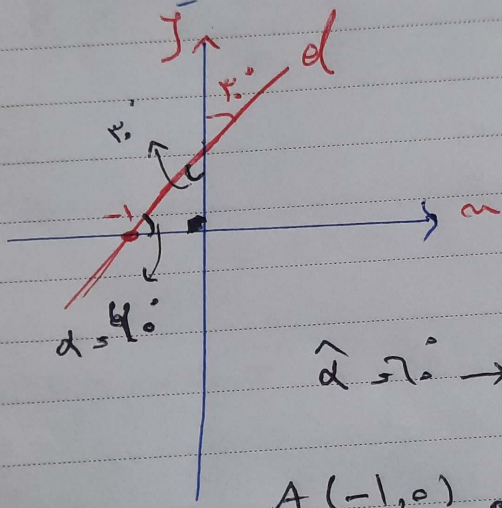 y d
۳۰°
۳۰°
-۱ x
α = ۶۰°
α̂ = ۶۰° →
A (-1,0)